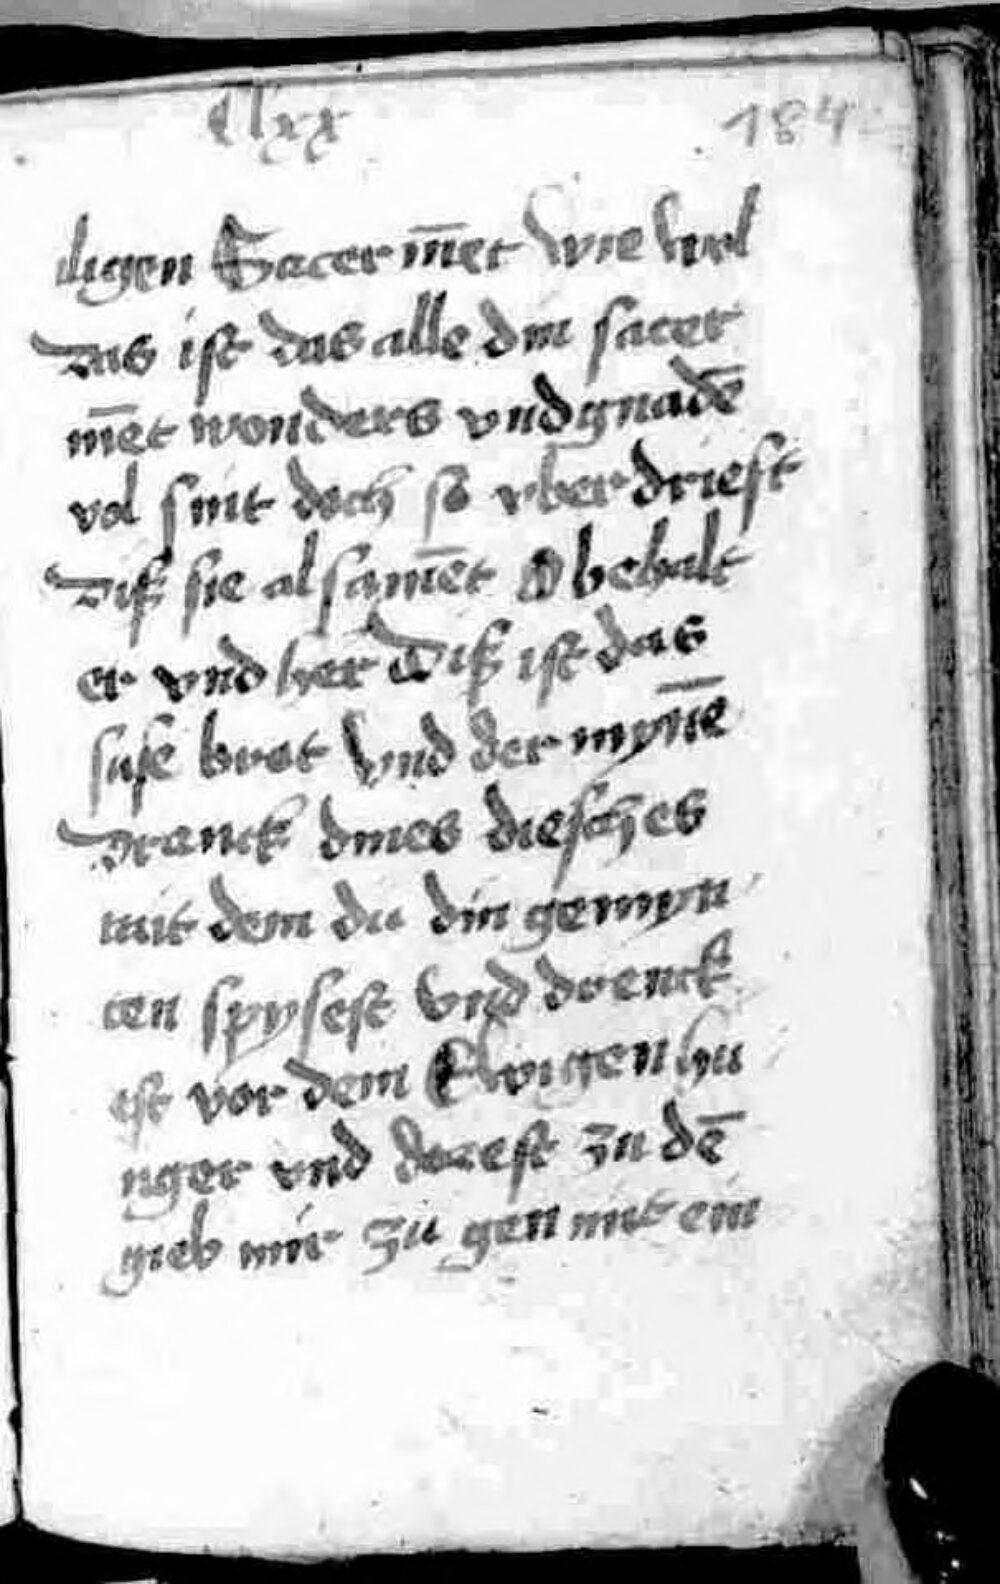 Clxx 184
ligen Sacerm̅et wie wol
Das ist das alle din sacer
m̅et wonders vnd gnade̅
vol sint doch so vber driest
Diß sie alsam̅et O behalt
er vnd her Diß ist das
suse brot vnd der myn̅e
Dranck dines diesches
mit dem du din gemyn
ten spysest vnd drenck
est vor dem Ewigen hu
nger vnd dorest zu de̅
gieb mir zu gen mit ein